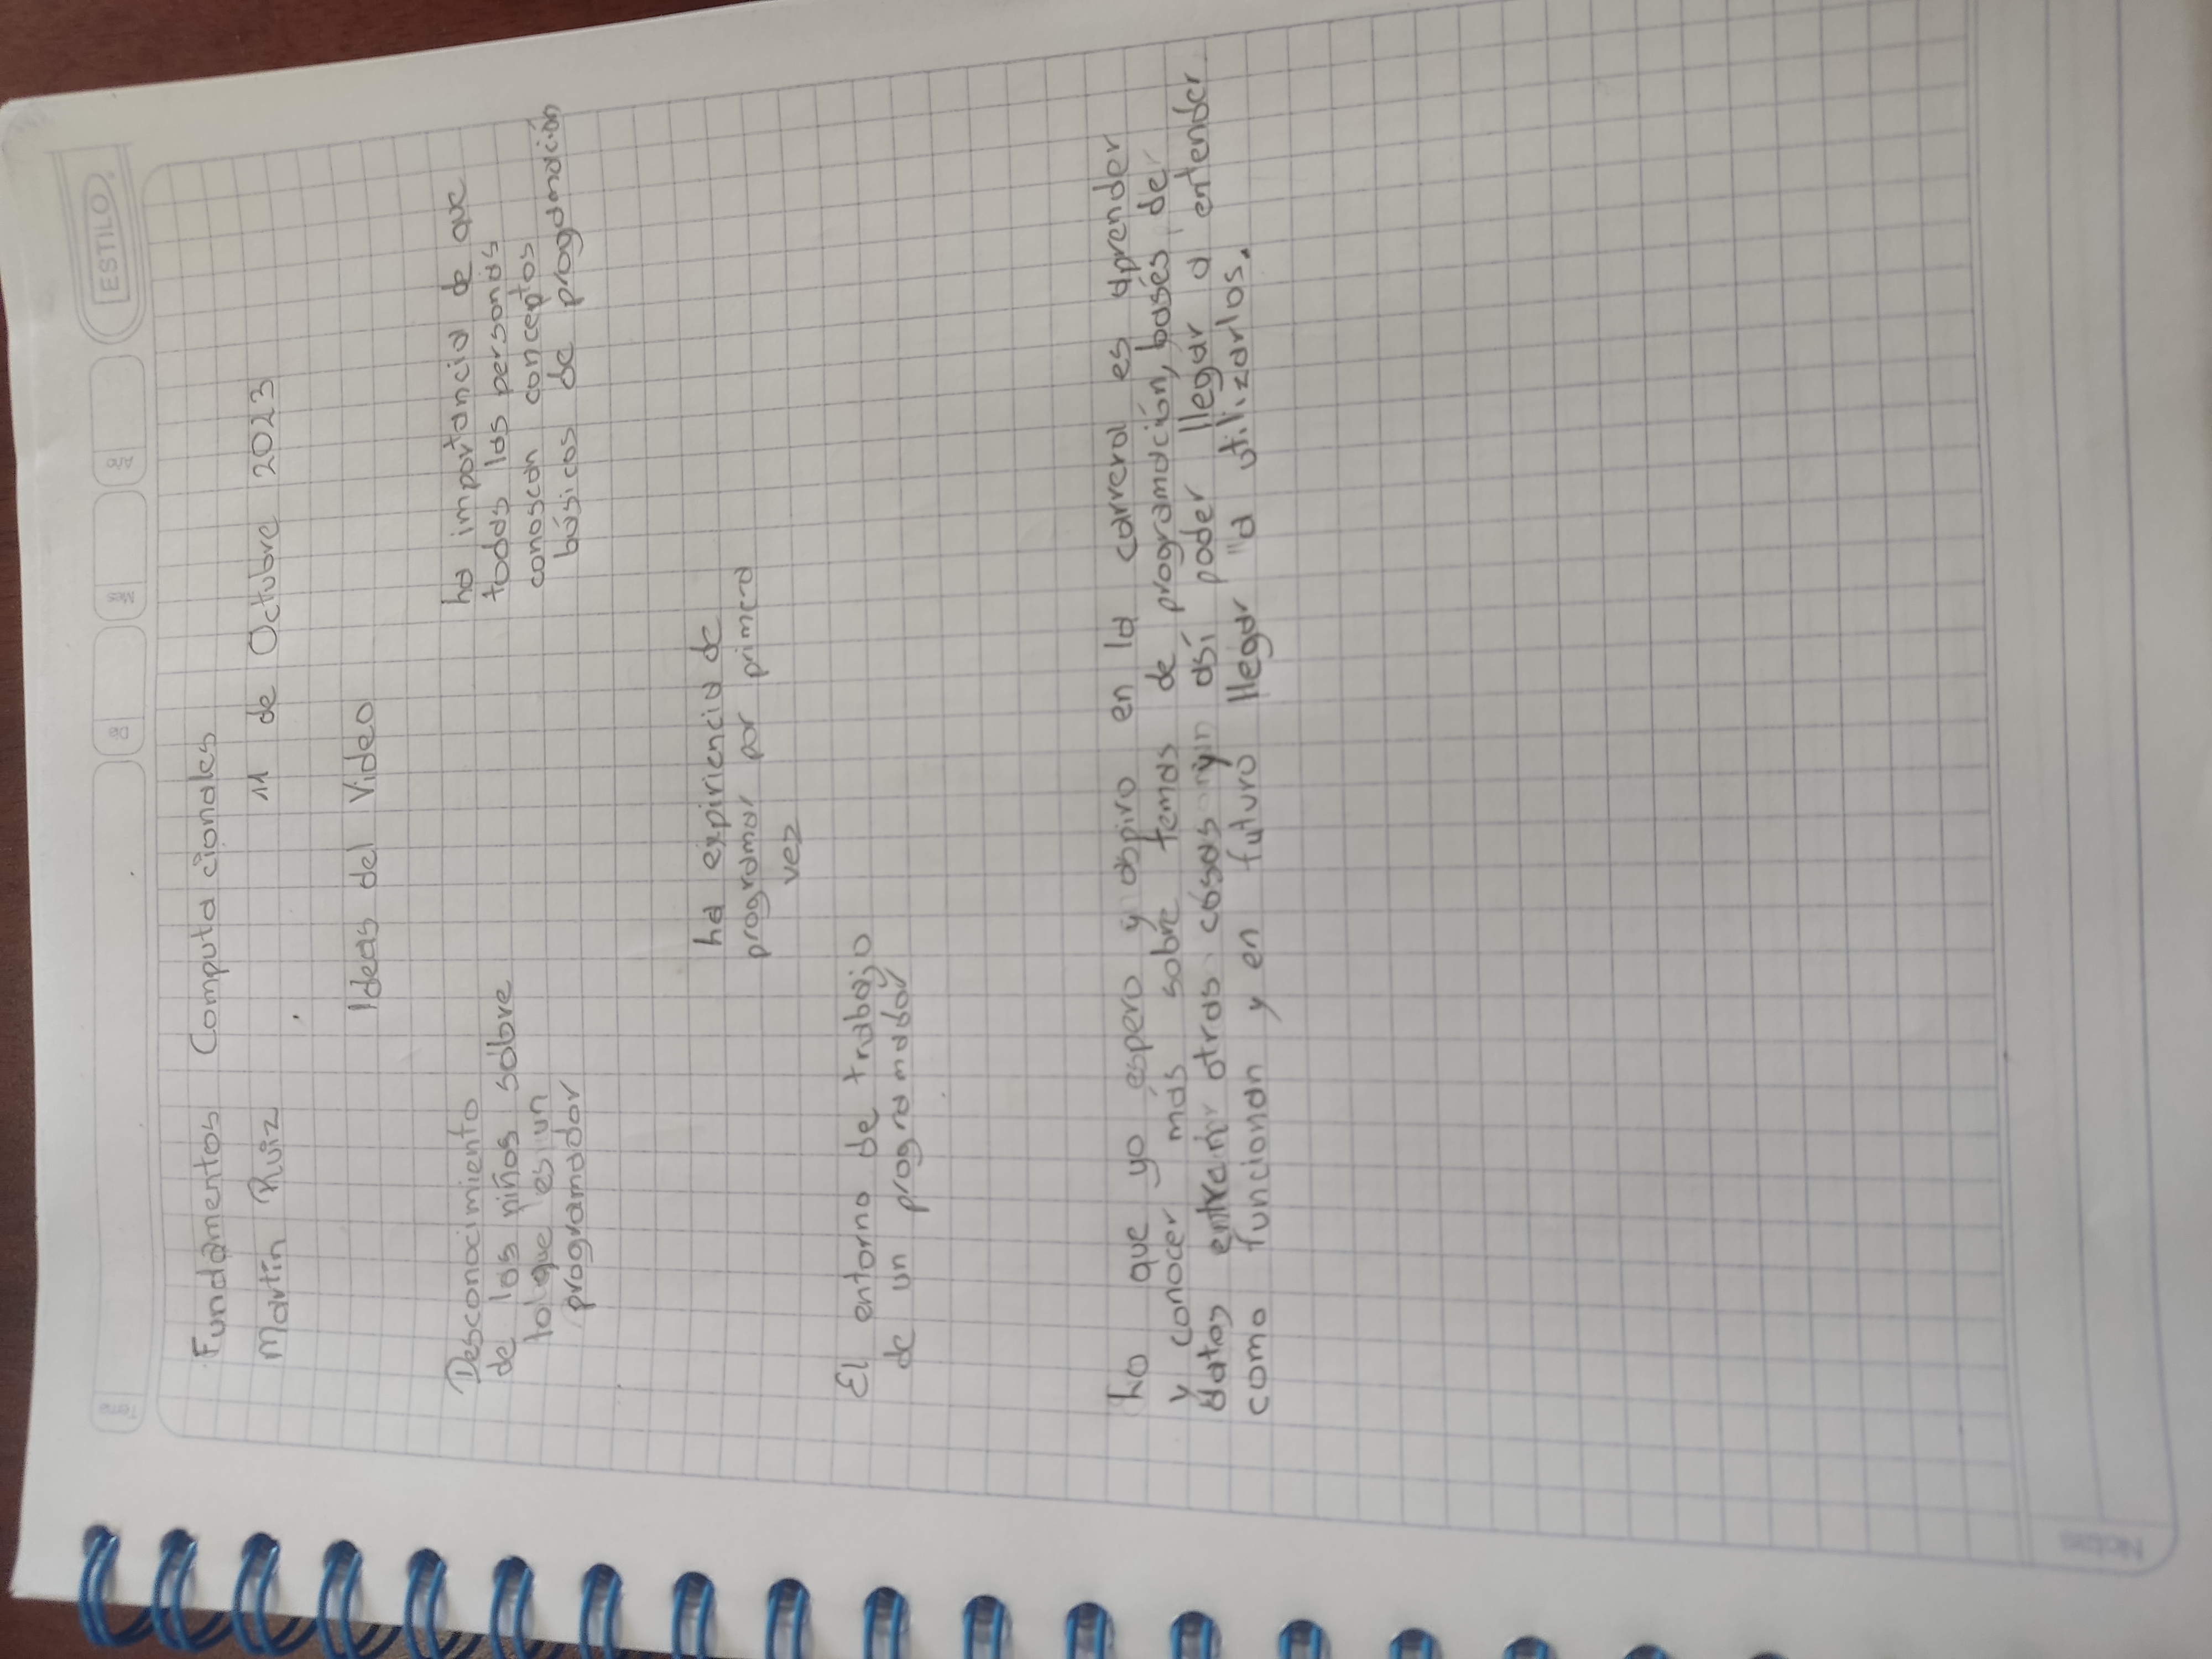 Tema
Día
Mes
Año
ESTILO
Fundamentos Computacionales
Martín Ruiz 11 de Octubre 2023
Ideas del Video
Desconocimiento
de los niños sobre
lo que es un
programador
La importancia de que
todas las personas
conoscan conceptos
básicos de progamación
La expiriencia de
programar por primera
vez
El entorno de trabajo
de un programador
Lo que yo espero y aspiro en la carrera es aprender
y conocer más sobre temas de programación, bases de
datos entre otras cosas y así poder llegar a entender
como funcionan y en futuro llegar a utilizarlos.
Notas